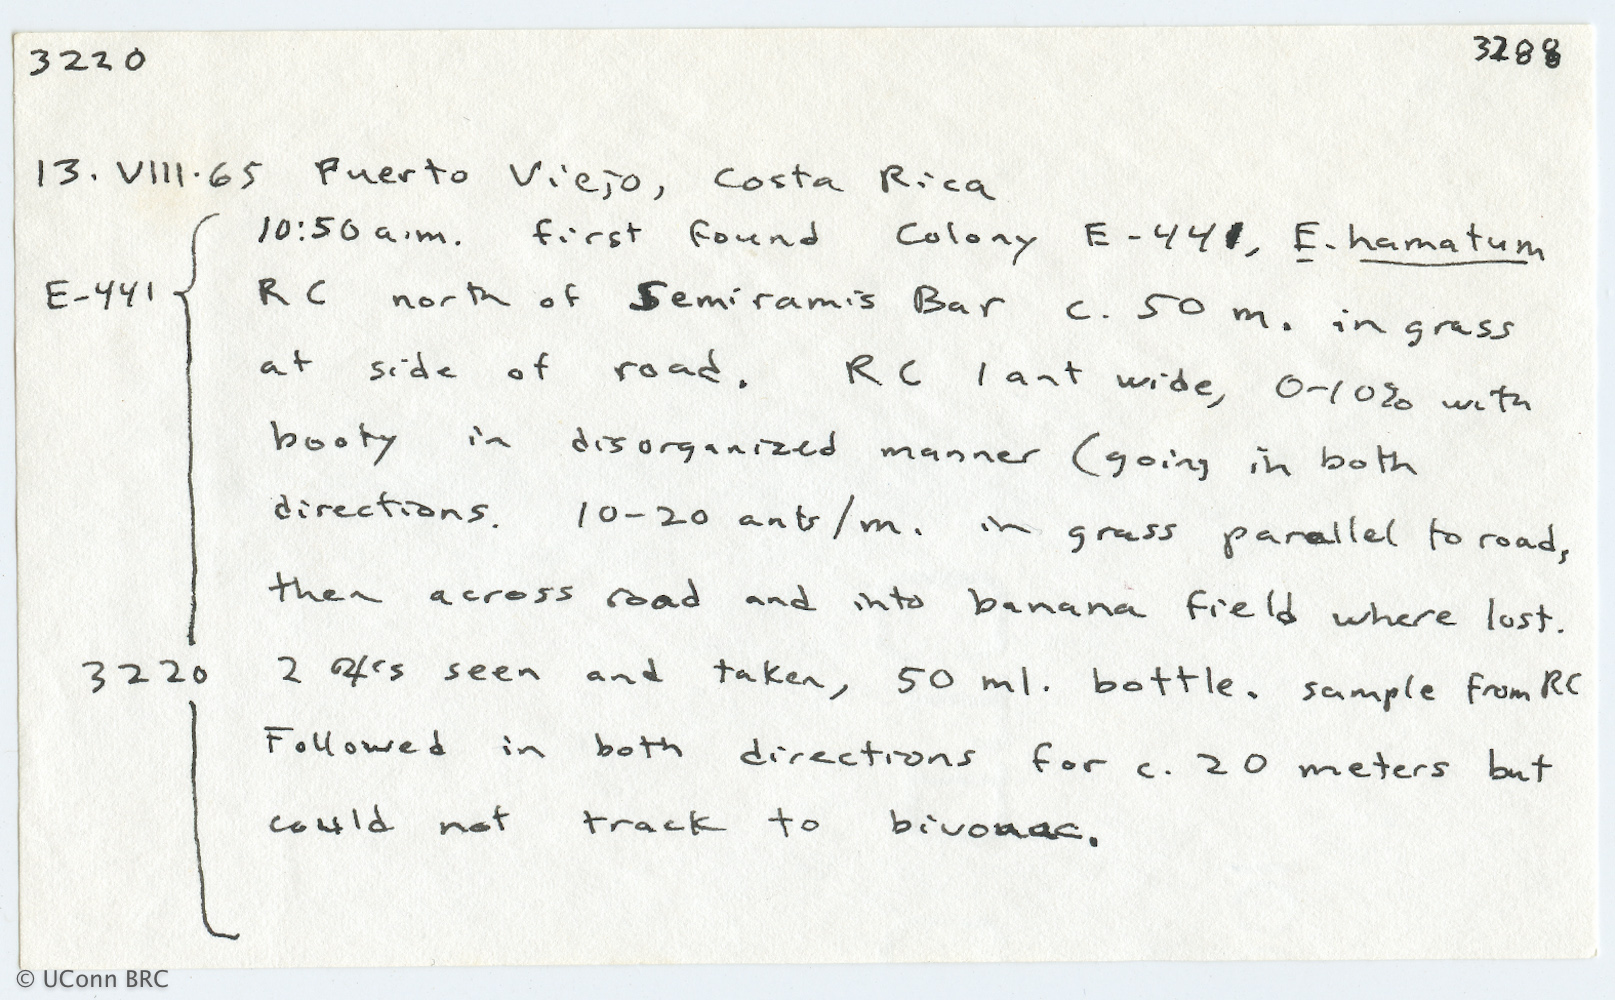 3220 3288
13. VIII. 65 Puerto Viejo, Costa Rica
10:50 a.m. first found Colony E-441, E. hamatum
E-441 RC north of Semiramis Bar c. 50 m. in grass
at side of road. RC 1 ant wide, 0-10% with
booty in disorganized manner (going in both
directions. 10-20 ants/m. in grass parallel to road,
then across road and into banana field where lost.
3220 2 seen and taken, 50 ml. bottle. sample from RC
Followed in both directions for c. 20 meters but
could not track to bivouac.
© UConn BRC